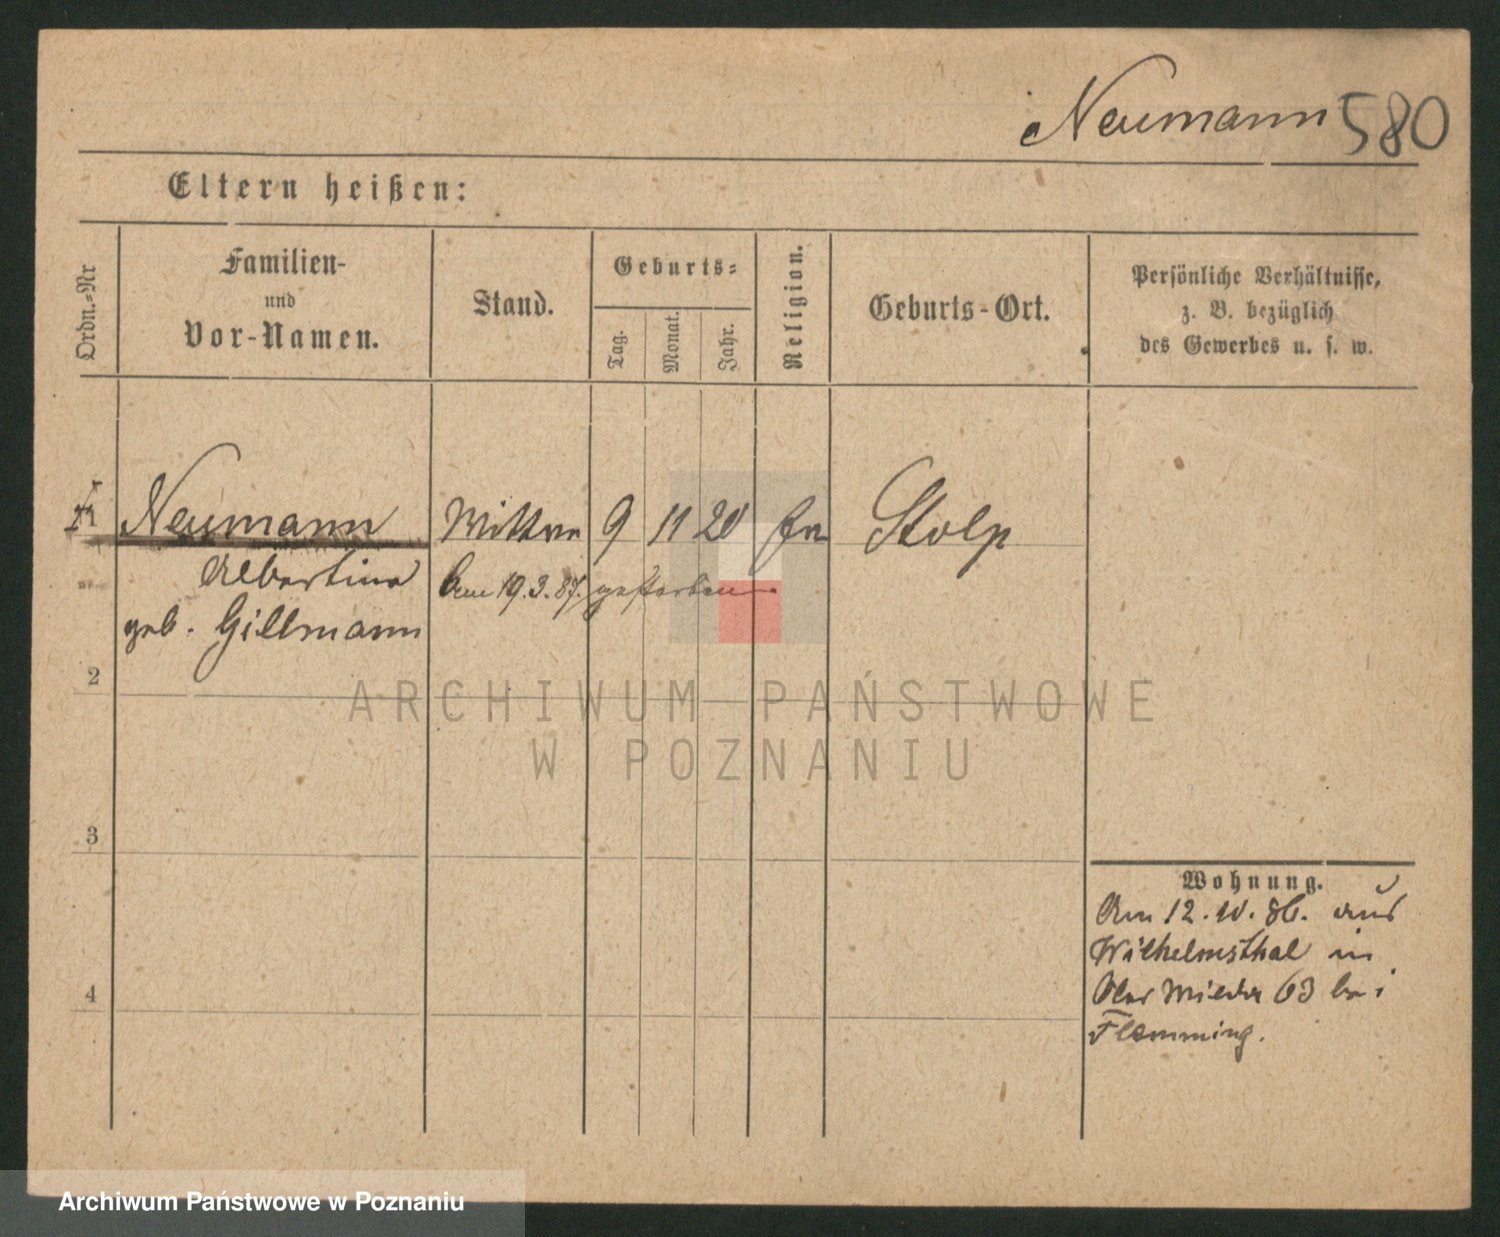 Neumann 580
Eltern heißen:
Ordn.=Nr
Familien-
und
Vor-Namen.
Stand.
Geburts=
Tag.
Monat.
Jahr.
Religion.
Geburts-Ort.
Persönliche Verhältnisse,
z. B. bezüglich
des Gewerbes u. s. w.
1 Neumann Wittwe 9 11 20 Stolp
Albertine Am 19.3.87. gestorben.
geb. Gillmann
2
ARCHIWUM PAŃSTWOWE
W POZNANIU
3
4
Wohnung.
Am 12. 10. 86. aus
Wilhelmsthal in
Ober Wilda 63 bei
Flemming.
Archiwum Państwowe w Poznaniu